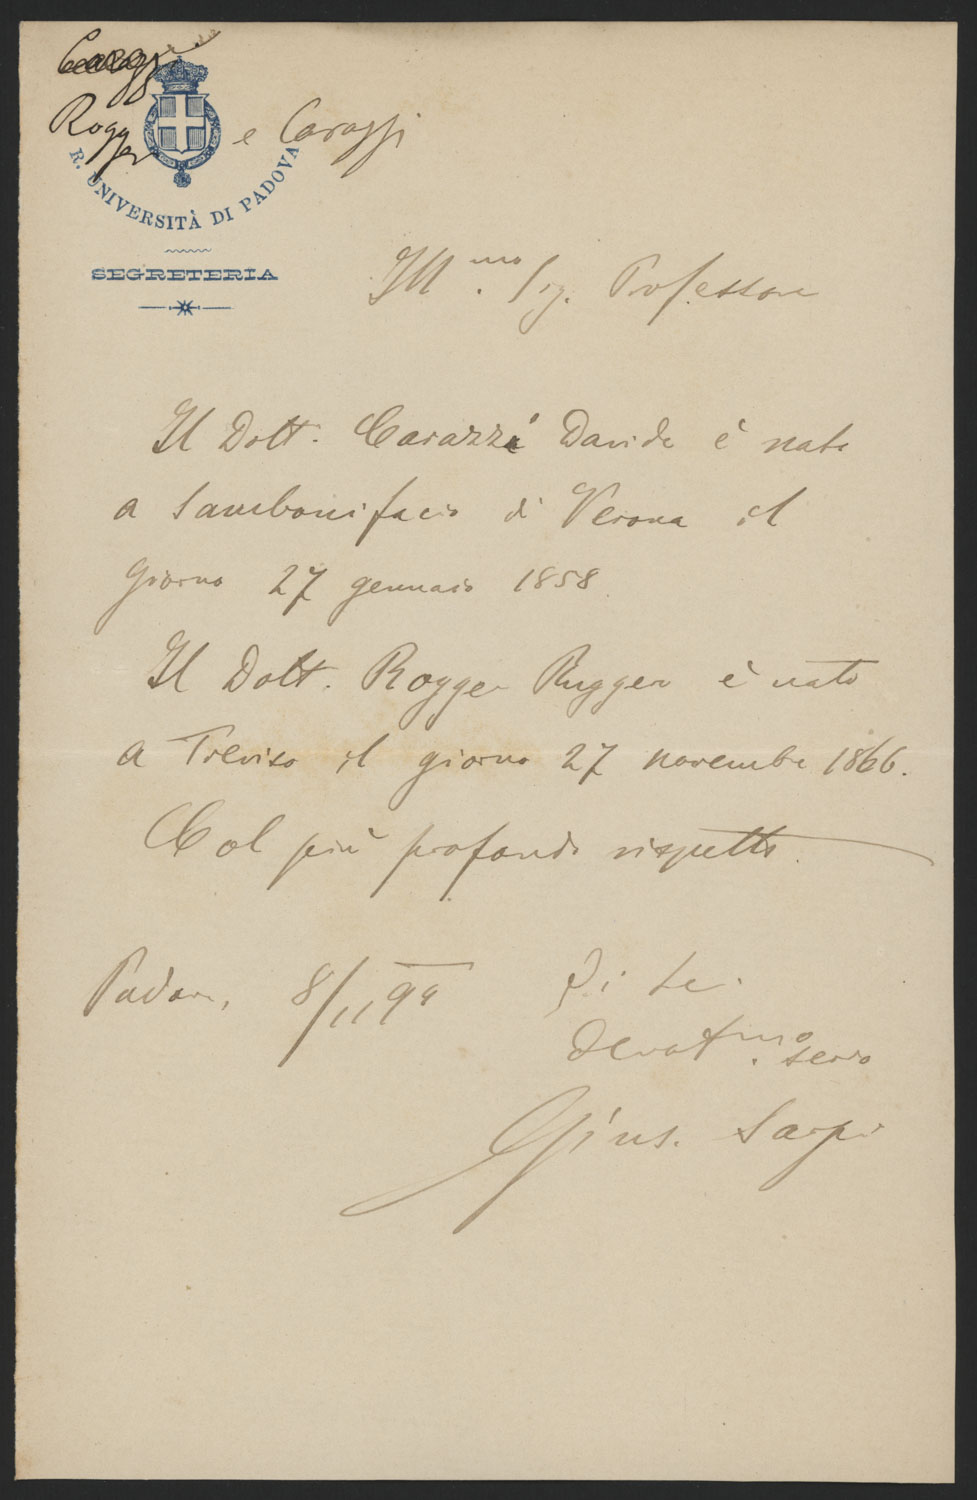 Rogger e Carazzi
R. UNIVERSITÀ DI PADOVA
SEGRETERIA
Ill.mo Sig. Professore
Il Dott. Carazzi Davide è nato
a Sambonifacio di Verona il
giorno 27 gennaio 1858
Il Dott. Rogger Rugger è nato
a Treviso il giorno 27 novembre 1866.
Col più profondo rispetto.
Padova, 8/11 94
Di Lei
devotmo. servo
Gius. Sarpi